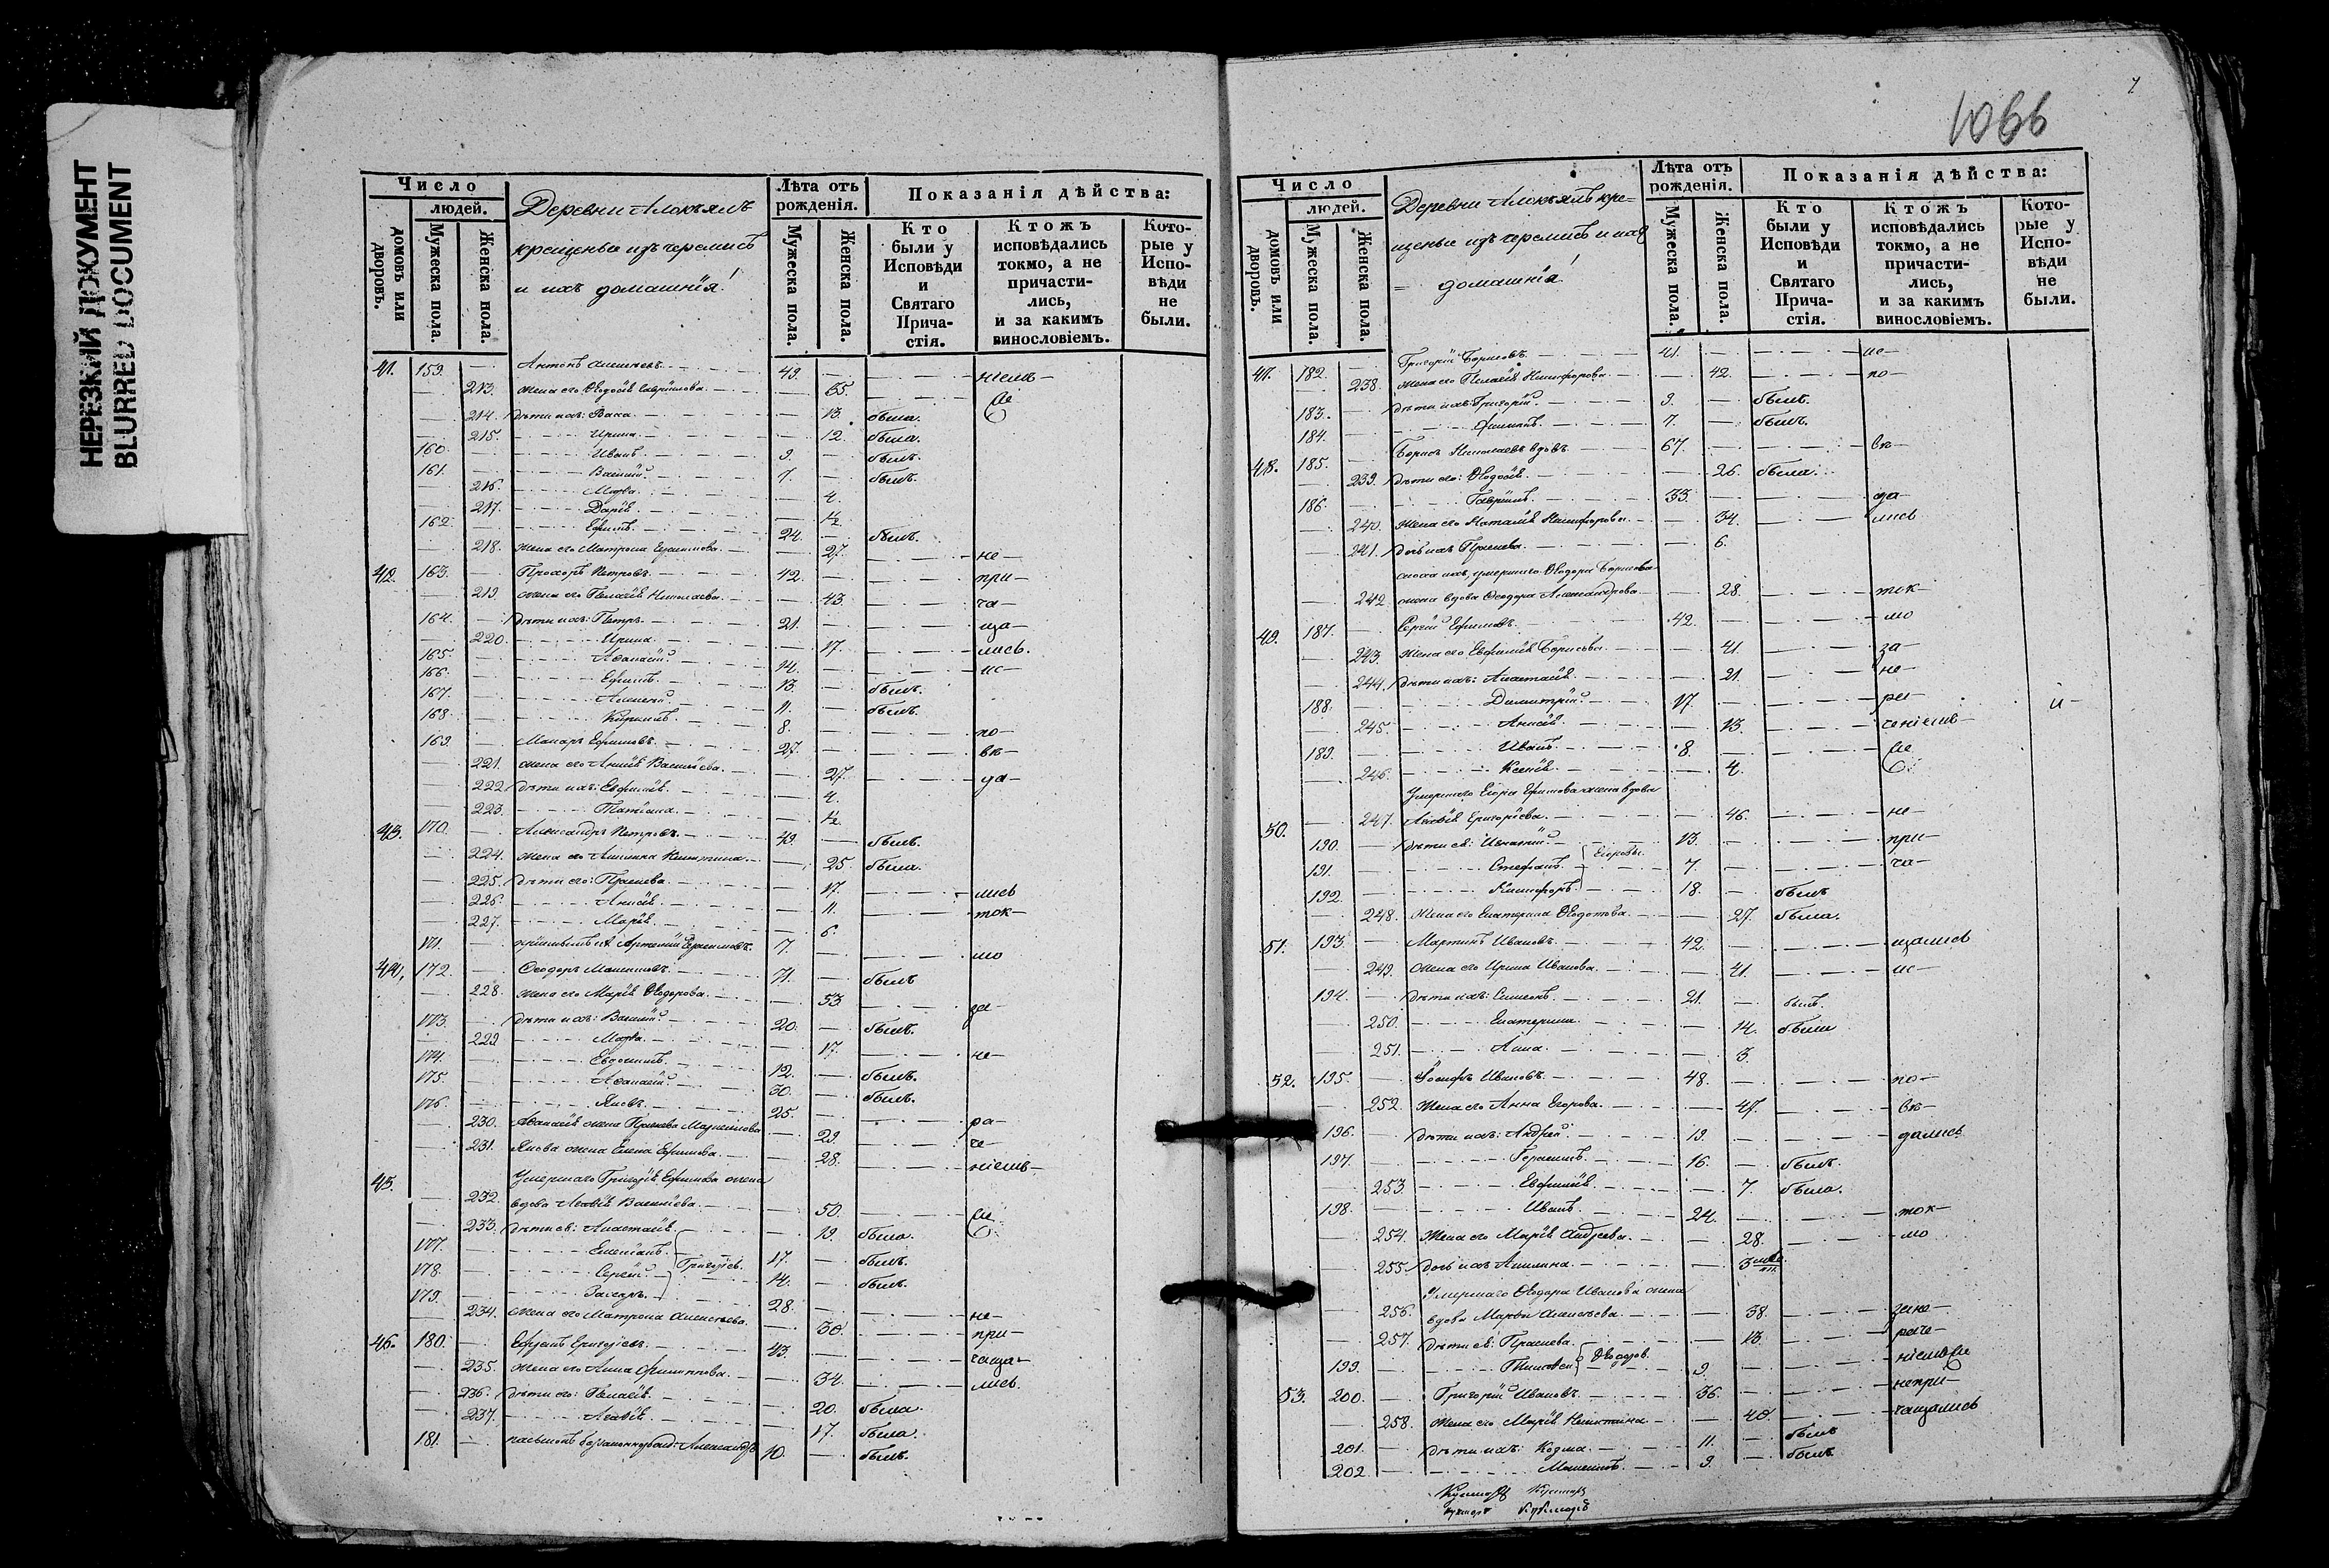 НЕРЕЗКИЙ ДОКУМЕНТ
BLURRED DOCUMENT
Число
людей.
домовъ или дворовъ.
Мужеска пола.
Женска пола.
Деревни
крещеные изъ черемисъ
и ихъ домашнія!
Лѣта отъ рожденія.
Мужеска пола.
Женска пола.
Показанія дѣйства:
Кто были у Исповѣди и Святаго Прича-стія.
Ктожъ исповѣдались токмо, а не причасти-лись, и за какимъ винословіемъ.
Кото-рые у Испо-вѣди не были.
41. 159. Антонъ 49. ніемъ
213. жена его Ѳедосія Гаврилова 55.
214. дѣти ихъ: Васса 13. была.
215. Ирина 12. была.
160. Иванъ 9. былъ.
161. Василій 7. былъ.
216. Марѳа 4.
217. Дарія ½
162. Ефимъ 24. былъ.
218. жена его Матрона Герасимова 27. не
42. 163. Прохоръ Петровъ 42. при
219. жена его Пелагія Николаева 43. ча
164. дѣти ихъ: Петръ 21. ща
220. Ирина 17. лись.
165. Аѳанасій 14. ис
166. Ефимъ 13. былъ.
167. Алексѣй 11. былъ.
168. Кириллъ 8. по
169. Макаръ Ефимовъ 27. вѣ
221. жена его Анисія Васильева 27. да
222. дѣти ихъ: Евфимія 4.
223. Татіана ½
43. 170. Александръ Петровъ 49. былъ.
224. жена его Акилина Никитина 25. была.
225. дѣти его: Прасковья 17. лись
226. Анисія 11. ток
227. Марія 6.
171. Артемій Герасимовъ 7. мо
44. 172. Ѳеодоръ 71. былъ
228. жена его Марія Ѳеодорова 53 за
173. дѣти ихъ: Василій 20. былъ.
229 Марѳа 17. не
174. Евдокимъ 12. былъ.
175. Аѳанасій 30. былъ.
176. Яковъ 25. ра
230. Аѳанасія жена 29. че
231. Якова жена Елена Ефимова 28. ніемъ
45. Умершаго Григорія Ефимова жена
232. вдова Агаѳія Васильева 50.
233. дѣти ея: Анастасія 19. была.
177. Емеліанъ 17. былъ.
178. Сергѣй 14. былъ.
Григорьев.
179. Захаръ 28.
234. жена его Матрона Алексѣева 30. не
46. 180. Ефремъ Григорьевъ 43. при
235. жена его Анна Филиппова 34. чаща
236. дѣти его: Пелагія 20. была. лись.
237. Агаѳія 17. была.
181. Александръ 10. былъ.
1066
Число
людей.
домовъ или дворовъ.
Мужеска пола.
Женска пола.
Деревни кре=
щеные изъ черемисъ и ихъ
= домашнія!
Лѣта отъ рожденія.
Мужеска пола.
Женска пола.
Показанія дѣйства:
Кто были у Исповѣди и Святаго Прича-стія.
Ктожъ исповѣдались токмо, а не причасти-лись, и за какимъ винословіемъ.
Кото-рые у Испо-вѣди не были.
47. 182. Григорій Борисовъ 41. ис
238. жена его Пелагія Никифорова 42. по
183. дѣти ихъ: Григорій 9. былъ.
184. Филиппъ 7. былъ.
48. 185. Борисъ Николаевъ вдовъ 67. вѣ
239. дѣти его: Ѳедосія 26. была.
186. Гавріилъ 33. да
240. жена его Наталія Никифорова 34. лись
241. дочь ихъ Прасковья 6.
сноха ихъ, умершаго Ѳедора Борисова
242. жена вдова Ѳеодора Александрова 28. ток
49. 187. Сергѣй Ефимовъ 42. мо
243. жена его Евфимія Борисова 41. за
244. дѣти ихъ: Анастасія 21. не
188. Димитрій 17. ра
245. Анисія 13. ченіемъ
189. Иванъ 8.
246. Ксенія 4.
50. Умершаго Егора Ефимова жена вдова
247. Агаѳія Григорьева 46. не
190. дѣти ея: Игнатій 13. при
191. Стефанъ 7. ча
Егоровы
192. Никифоръ 18. былъ
248. жена его Екатерина Ѳедотова 27. была.
51. 193. Мартинъ Ивановъ 42. щались
249. жена его Ирина Иванова 41. ис
194. дѣти ихъ: Симеонъ 21. былъ.
250. Екатерина 14. была
251. Анна 3.
52. 195. Іосифъ Ивановъ 48. по
252. жена его Анна Егорова 47. вѣ
196. дѣти ихъ: Андрей 19. дались
197. Герасимъ 16. былъ.
253. Евфимія 7. была.
198. Иванъ 24. ток
254. жена его Марія Андреева 28. мо
255. дочь ихъ Акилина 3
Умершаго Ѳедора Иванова жена
256. вдова Марѳа Алексѣева 38. зане
257. дѣти ея: Прасковья 13. раче
199. Тимоѳей 9. ніемъ
Ѳеодоров.
53. 200. Григорій Ивановъ 36. непри
258. жена его Марія Никитина 40. чащались
201. дѣти ихъ: Козма 11. былъ
202. 9. былъ